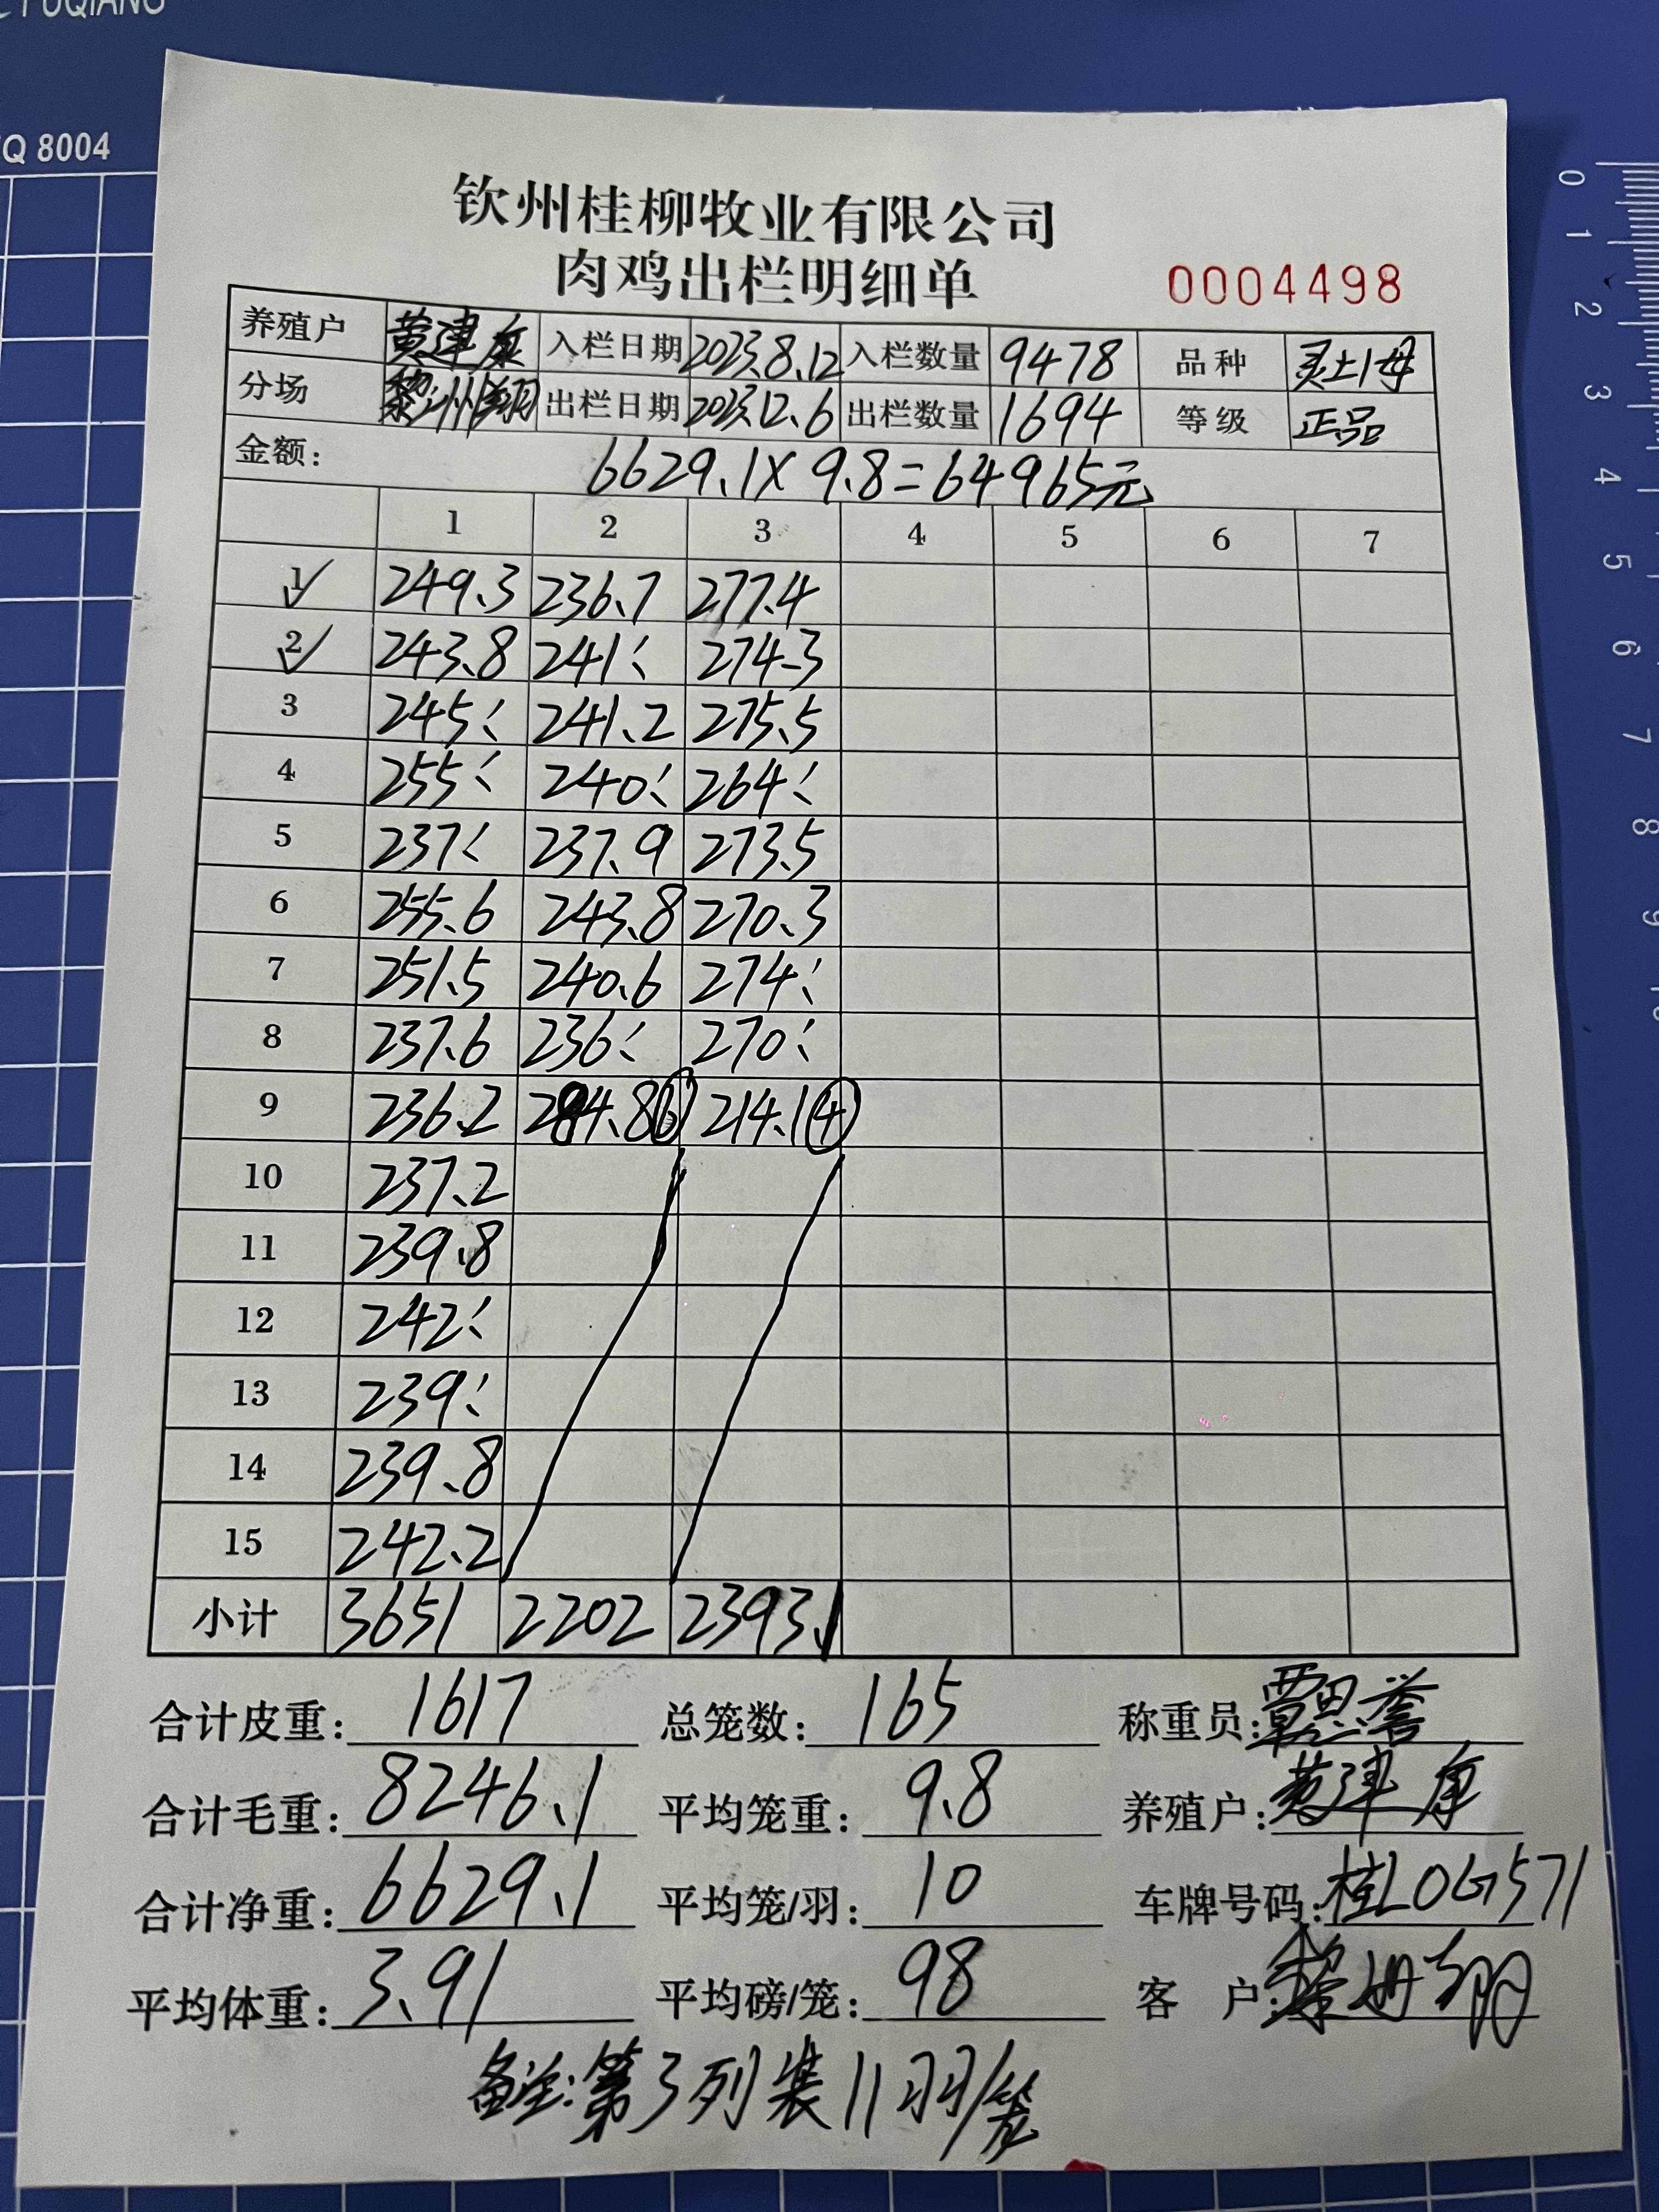 FUQIANG
Q 8004
钦州桂柳牧业有限公司
肉鸡出栏明细单
0004498
养殖户 黄建康 入栏日期 2023.8.12 入栏数量 9478 品种 灵土1母
分场 黎州翔 出栏日期 2023.12.6 出栏数量 1694 等级 正品
金额: 6629.1×9.8=64965元
1 2 3 4 5 6 7
1✓ 249.3 236.7 277.4
2✓ 243.8 241: 274.3
3 245: 241.2 275.5
4 255: 240: 264:
5 237: 237.9 273.5
6 255.6 243.8 270.3
7 251.5 240.6 274:
8 237.6 236: 270:
9 236.2 284.8⑥ 214.1④
10 237.2
11 239.8
12 242:
13 239:
14 239.8
15 242.2
小计 3651 2202 2393.1
合计皮重: 1617 总笼数: 165 称重员: 覃思誉
合计毛重: 8246.1 平均笼重: 9.8 养殖户: 黄建康
合计净重: 6629.1 平均笼/羽: 10 车牌号码: 桂L0G571
平均体重: 3.91 平均磅/笼: 98 客户:
备注:第3列装11羽/笼
0
1
2
3
4
5
6
7
8
9